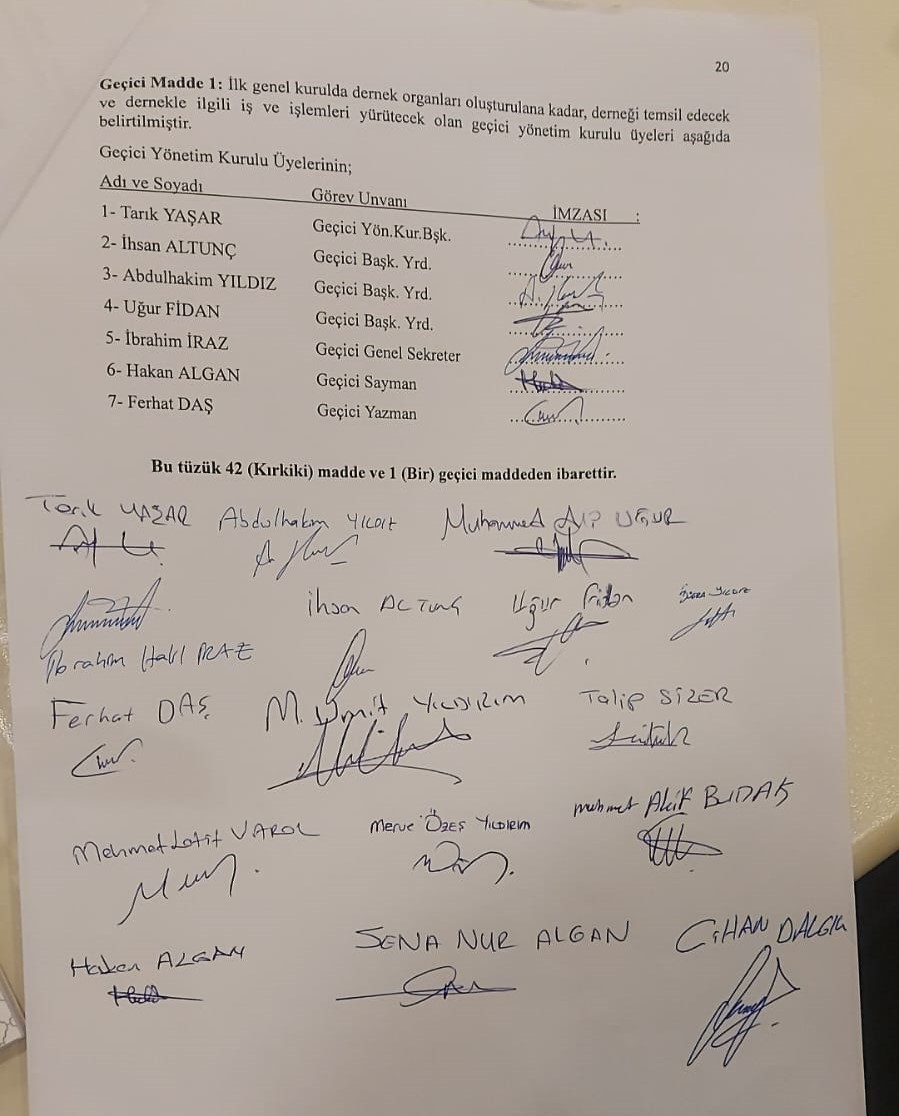 20
Geçici Madde 1: İlk genel kurulda dernek organları oluşturulana kadar, derneği temsil edecek
ve dernekle ilgili iş ve işlemleri yürütecek olan geçici yönetim kurulu üyeleri aşağıda
belirtilmiştir.
Geçici Yönetim Kurulu Üyelerinin;
Adı ve Soyadı Görev Unvanı İMZASI :
1- Tarık YAŞAR Geçici Yön.Kur.Bşk.
2- İhsan ALTUNÇ Geçici Başk. Yrd.
3- Abdulhakim YILDIZ Geçici Başk. Yrd.
4- Uğur FİDAN Geçici Başk. Yrd.
5- İbrahim İRAZ Geçici Genel Sekreter
6- Hakan ALGAN Geçici Sayman
7- Ferhat DAŞ Geçici Yazman
Bu tüzük 42 (Kırkiki) madde ve 1 (Bir) geçici maddeden ibarettir.
Tarık YAŞAR Abdulhakim Muhammed Alp UĞUR
İhsan ALTUNÇ Uğur Fidan
İbrahim Halil İRAZ
Ferhat DAŞ M. Ümit YILDIRIM Talip SİZER
Mehmet Latif VAROL Merve Özeş Yıldırım Mehmet Akif BUDAK
Hakan ALGAN SENA NUR ALGAN CİHAN DALGIÇ